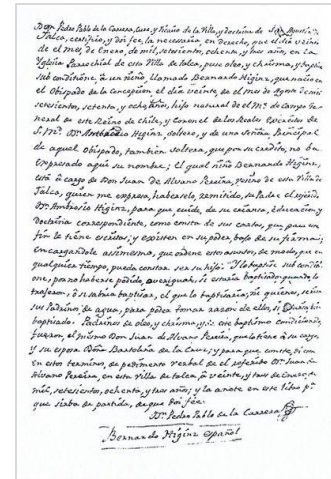 Don Pedro Pablo de la Carrera, Cura, y Vicario de la Villa, y doctrina de San Agustin de
Talca, certifico, y doi fee, la necesaria, en derecho, que el dia veinte
de el mes, de Enero, de mil, setesientos, ochenta, y tres años, en la
Iglecia Parrochial de esta Villa de Talca, puse oleo, y chrisma, y baptisé
sub conditione, a un niño, llamado Bernardo Higins, que nacio en
el Obispado de la Concepcion, el dia veinte, de el mes de Agosto de mil
setesientos, setenta, y ocho años, hijo natural de el Mtre. de Campo Ge-
neral de este Reino de Chile, y Coronel de los Reales Exercitos de
S. M. Dn. Ambrosio Higins, soltero, y de una Señora Principal
de aquel Obispado, tambien soltera, que por su credito, no ha
expresado aqui su nombre; El qual niño Bernardo Higins,
está á cargo de Don Juan de Albano Pereira, vesino de esta Villa de
Talca, quien me expresa, haberselo, remitido, su Padre el referido,
Dn. Ambrosio Higins, para que cuide, de su criansa, educacion, y
doctrina correspondiente, como consta de sus cartas, que para este
fin le tiene escritas, y existen en su poder, bajo de su firma;
encargandole assimesmo, que ordene estos asuntos, de modo, que en
qualquier tiempo, pueda constar ser su hijo: Y lo baptisé sub conditi-
one, por no haberse podido, averiguar, si estaria baptisado, quando lo
trajeron, ó si sabria baptisar, el que lo baptisaria, ni quienes, serian
sus Padrinos de agua, para poder tomar razon de ellos, si estaba bien
baptisado: Padrinos de oleo, y chrisma, y si: este baptismo condicionado,
fueron, el mismo Don Juan de Albano Pereira, que lo tiene á su cargo,
y su esposa Doña Bartolina de la Cruz, y para que conste, di esta
en estos terminos, de pedimento verbal de el referido Dn. Juan de
Albano Pereira, en esta Villa de Talca, á veinte, y tres de Enero, de
mil, setesientos, ochenta, y tres años; y la anoté en este libro pa.
que sirba de partida, de que doi fee.
Dn. Pedro Pablo de la Carrera
Bernardo Higins Español